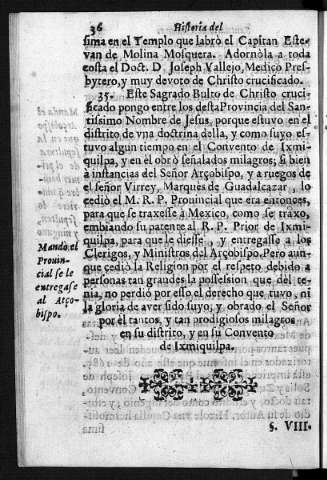 36 Historia del
sima en el Templo que labrò el Capitan Este-
van de Molina Mosquera. Adornòla a toda
costa el Doct. D. Joseph Vallejo, Medico Pres-
bytero, y muy devoto de Christo crucificado.
35. Este Sagrado Bulto de Christo cruci-
ficado pongo entre los desta Provincia del San-
tissimo Nombre de Jesus, porque estuvo en el
distrito de vna doctrina della, y como suyo es-
tuvo algun tiempo en el Convento de Ixmi-
quilpa, y en èl obrò señalados milagros; si bien
à instancias del Señor Arçobispo, y a ruegos de
el señor Virrey, Marquès de Guadalcazar, lo
cediò el M. R. P. Provincial que era entonces,
para que se traxesse a Mexico, como se traxo,
embiando su patente al R. P. Prior de Ixmi-
quilpa, para que le diesse, y entregasse a los
Clerigos, y Ministros del Arçobispo. Pero aun-
que cediò la Religion por el respeto debido à
personas tan grandes la possession que del te-
nia, no perdiò por esso el derecho que tuvo, ni
la gloria de aver sido suyo, y obrado el Señor
por èl tantos, y tan prodigiosos milagros
en su distrito, y en su Convento
de Ixmiquilpa.
Mandò el
Provin-
cial se le
entregase
al Arço-
bispo.
§. VIII.